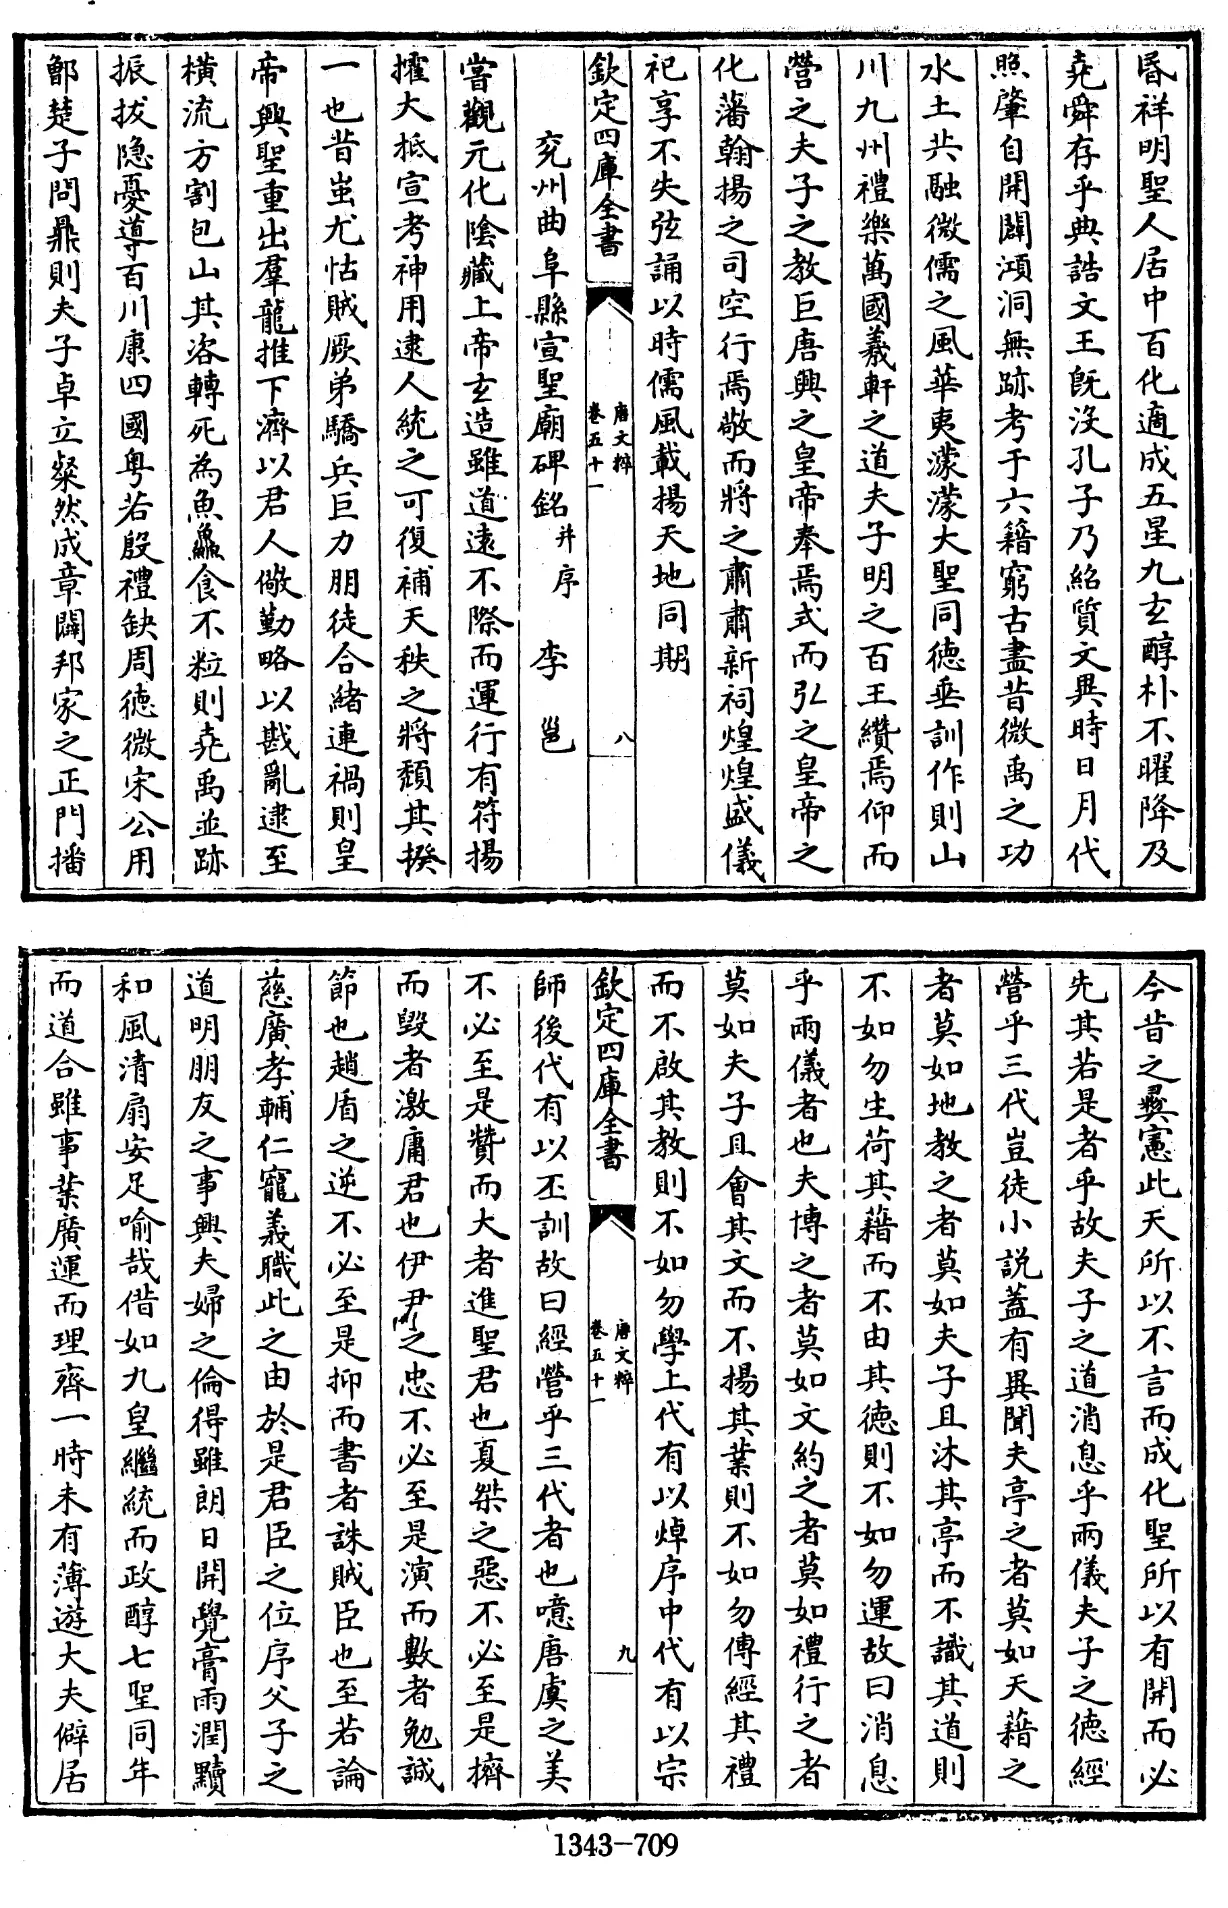 昏祥明聖人居中百化適成五星九玄醇朴不曜降及
堯舜存乎典誥文王旣沒孔子乃紹質文異時日月代
照肇自開闢澒洞無跡考于六籍窮古盡昔微禹之功
水土共融微儒之風華夷濛濛大聖同徳垂訓作則山
川九州禮樂萬國羲軒之道夫子明之百王纘焉仰而
營之夫子之教巨唐興之皇帝奉焉式而弘之皇帝之
化藩翰揚之司空行焉敬而將之肅肅新祠煌煌盛儀
祀享不失弦誦以時儒風載揚天地同期
欽定四庫全書
唐文粹
卷五十一
八
兖州曲阜縣宣聖廟碑銘并序 李邕
嘗觀元化陰藏上帝玄造雖道遠不際而運行有符揚
搉大抵宣考神用逮人統之可復補天秩之將頽其揆
一也昔蚩尤怙賊厥弟驕兵巨力朋徒合緒連禍則皇
帝興聖重出羣龍推下濟以君人儆勤略以戡亂逮至
橫流方割包山其咨轉死為魚鱻食不粒則堯禹並跡
振拔隐憂導百川康四國粤若殷禮缺周徳微宋公用
鄫楚子問鼎則夫子卓立粲然成章闢邦家之正門播
今昔之彛憲此天所以不言而成化聖所以有開而必
先其若是者乎故夫子之道消息乎兩儀夫子之徳經
營乎三代豈徒小説蓋有異聞夫亭之者莫如天藉之
者莫如地教之者莫如夫子且沐其亭而不識其道則
不如勿生荷其藉而不由其徳則不如勿運故曰消息
乎兩儀者也夫博之者莫如文約之者莫如禮行之者
莫如夫子且會其文而不揚其業則不如勿傳經其禮
而不啟其教則不如勿學上代有以焯序中代有以宗
欽定四庫全書
唐文粹
卷五十一
九
師後代有以丕訓故曰經營乎三代者也噫唐虞之美
不必至是贊而大者進聖君也夏桀之惡不必至是擠
而毀者激庸君也伊尹之忠不必至是演而數者勉誠
節也趙盾之逆不必至是抑而書者誅賊臣也至若論
慈廣孝輔仁寵義職此之由於是君臣之位序父子之
道明朋友之事興夫婦之倫得雖朗日開覺膏雨潤黷
和風清扇安足喻哉借如九皇繼統而政醇七聖同年
而道合雖事業廣運而理齊一時未有薄遊大夫僻居
1343-709